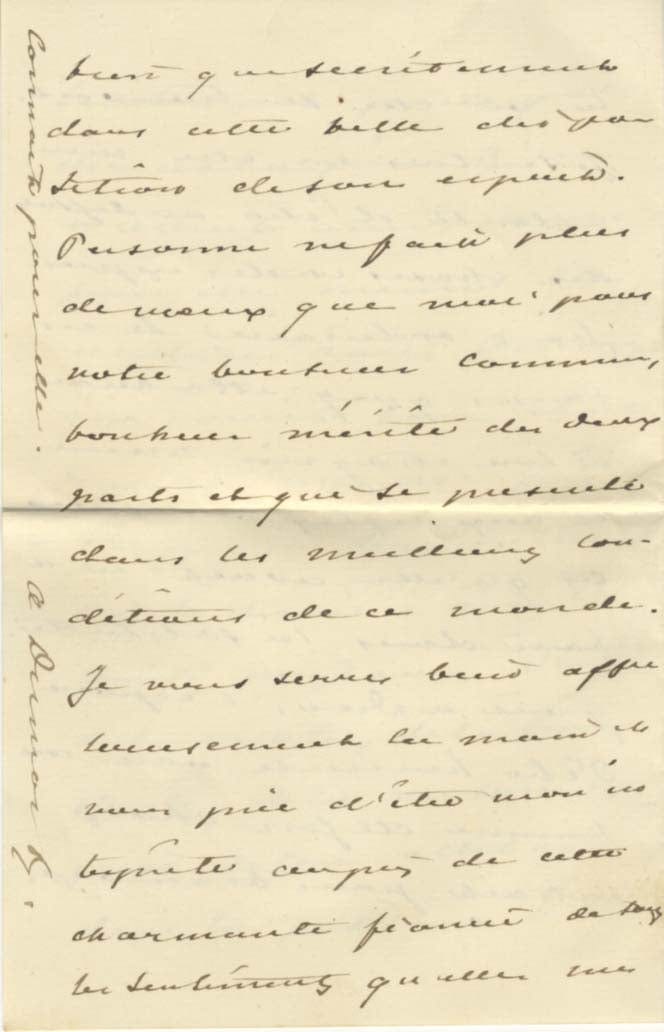 bien que secrètement
dans cette belle dispo
sition de son esprit.
Personne ne fait plus
de vœux que moi pour
votre bonheur commun,
bonheur mérité des deux
parts et qui se présente
dans les meilleures con-
ditions de ce monde.
Je vous serre bien affec
tueusement la main et
vous prie d'être mon in
terprète auprès de cette
charmante fiancée de tous
les sentiments qu'elle me
connait pour elle.
A Dumas f.